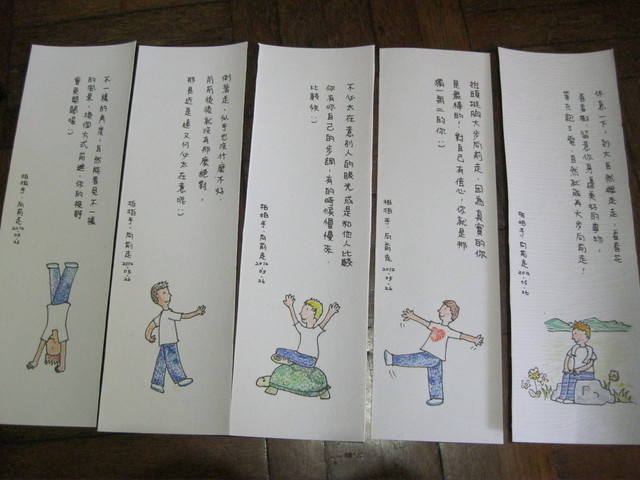 不一樣的角度,自然能看見不一樣
的風景,換個方式前進,你的視野
會更開闊喔:)
拍拍手,向前走 2010.05.26
倒著走,似乎也沒什麼不好,
前前後後就沒有那麼絕對,
那是近是遠又何必太在意呢:)
拍拍手,向前走 2010.05.26
不必太在意別人的眼光或是和他人比較
你有你自己的步調,有的時候慢慢來,
比較快:)
拍拍手,向前走 2010.05.26
抬頭挺胸大步向前走,因為真實的你
是最棒的!對自己有信心,你就是那
獨一無二的你:)
拍拍手,向前走 2010.05.26
休息一下,到大自然裡走走,看看花
看看樹,留意你身邊美好的事物,
等充飽了電,自然就能再大步向前走!
拍拍手,向前走 2010.05.26